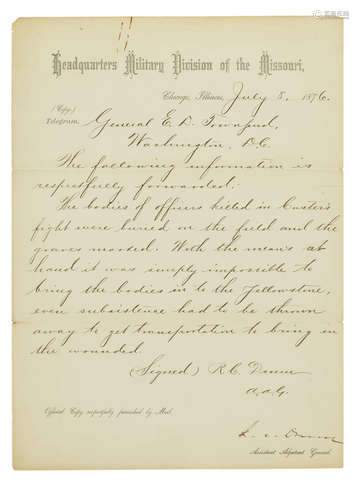 Headquarters Military Division of the Missouri,
Chicago, Illinois, July 8, 1876.
(Copy)
Telegram.
General E. D. Townsend,
Washington, D.C.
The following information is
respectfully forwarded:
The bodies of officers killed in Custer's
fight were buried on the field and the
graves marked. With the means at
hand it was simply impossible to
bring the bodies in to the Yellowstone,
even subsistence had to be thrown
away to get transportation to bring in
the wounded.
(Signed) R C Drum
A.A.G.
Official Copy respectfully furnished by Mail.
Assistant Adjutant General.